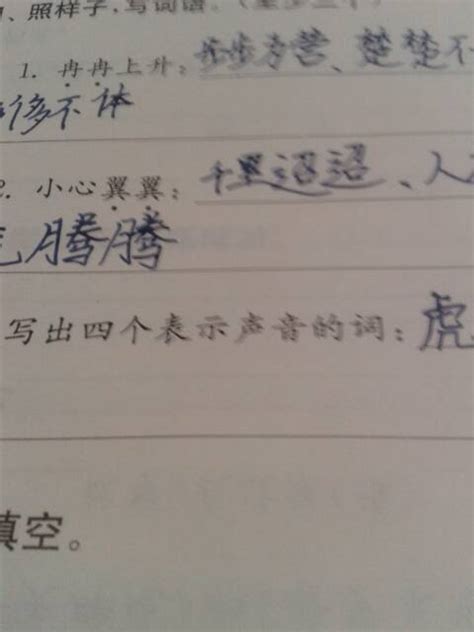 、照样子,写词语。(至少三个)
1. 冉冉上升:步步为营、楚楚不
侈不体
2. 小心翼翼:千里迢迢、人
腾腾
写出四个表示声音的词:虎
填空。